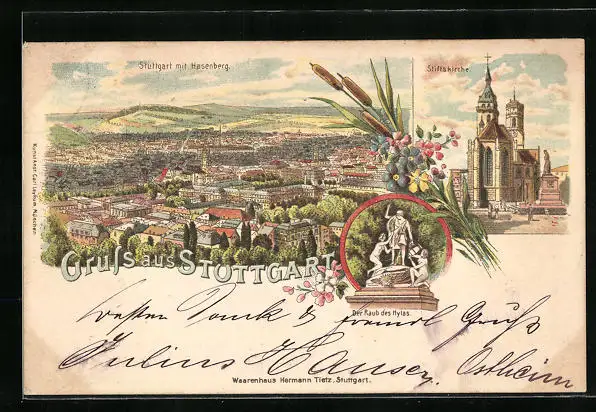 Stuttgart mit Hasenberg.
Stiftskirche.
Kunstanst. Carl München
Gruss aus STUTTGART
Der Raub des Hylas.
besten Dank & freundl Gruß
Julius Hauser, Ostheim
Waarenhaus Hermann Tietz, Stuttgart.